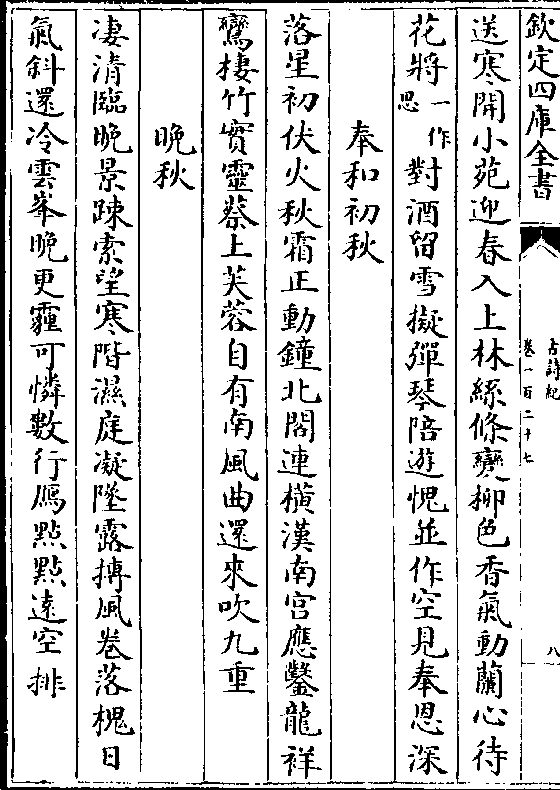 欽定四庫全書
古詩紀
卷一百二十七
八
送寒開小苑迎春入上林絲條變柳色香氣動蘭心待
花將一作思對酒留雪擬彈琴陪遊愧並作空見奉恩深
奉和初秋
落星初伏火秋霜正動鐘北閣連橫漢南宮應鑿龍祥
鸞棲竹實靈蔡上芙蓉自有南風曲還來吹九重
晚秋
凄清臨晚景疎索望寒階濕庭凝墜露搏風卷落槐日
氣斜還冷雲峯晚更霾可憐數行鴈點點遠空排